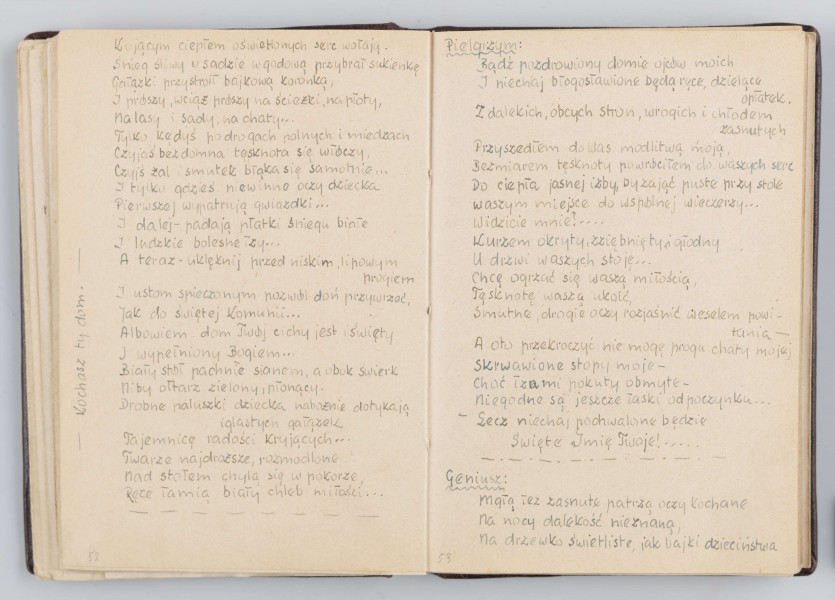 Kojącym ciepłem oświetlonych serc wołają.
Śnieg śliwy w sadzie w godową przybrał sukienkę
Gałązki przystroił bajkową koronką,
I prószy, wciąż prószy na ścieżki, na płoty,
Na lasy i sady, na chaty...
Tylko kędyś po drogach polnych i miedzach
Czyjaś bezdomna tęsknota się włóczy,
Czyjś żal i smutek błąka się samotnie...
I tylko gdzieś niewinne oczy dziecka
Pierwszej wypatrują gwiazdki...
I dalej - padają płatki śniegu białe
I ludzkie bolesne łzy...
A teraz - uklęknij przed niskim, lipowym
progiem
I ustom spieczonym pozwól doń przywrzeć,
Jak do świętej Komunii...
Albowiem dom Twój cichy jest i święty
I wypełniony Bogiem...
Biały stół pachnie sianem, a obok świerk
Niby ołtarz zielony, płonący.
Drobne paluszki dziecka nabożnie dotykają
iglastych gałązek
Tajemnicę radości kryjących...
Twarze najdroższe, rozmodlone
Nad stołem chylą się w pokorze,
Ręce łamią biały chleb miłości...
— Kochasz ty dom. —
52
Pielgrzym:
Bądź pozdrowiony domie ojców moich
I niechaj błogosławione będą ręce, dzielące
opłatek.
Z dalekich, obcych stron, wrogich i chłodem
zasnutych
Przyszedłem do Was modlitwą moją,
Bezmiarem tęsknoty powróciłem do waszych serc
Do ciepła jasnej izby, by zająć puste przy stole
waszym miejsce do wspólnej wieczerzy...
Widzicie mnie?....
Kurzem okryty, zziębnięty i głodny
U drzwi waszych stoję...
Chcę ogrzać się waszą miłością,
Tęsknotę waszą ukoić,
Smutne, drogie oczy rozjaśnić weselem powi-
tania —
A oto przekroczyć nie mogę progu chaty mojej
Skrwawione stopy moje -
Choć łzami pokuty obmyte -
Niegodne są jeszcze łaski odpoczynku...
- Lecz niechaj pochwalone będzie
Święte Imię Twoje!.....
Geniusz:
Mgłą łez zasnute patrzą oczy kochane
Na nocy dalekość nieznaną,
Na drzewko świetliste, jak bajki dzieciństwa
53